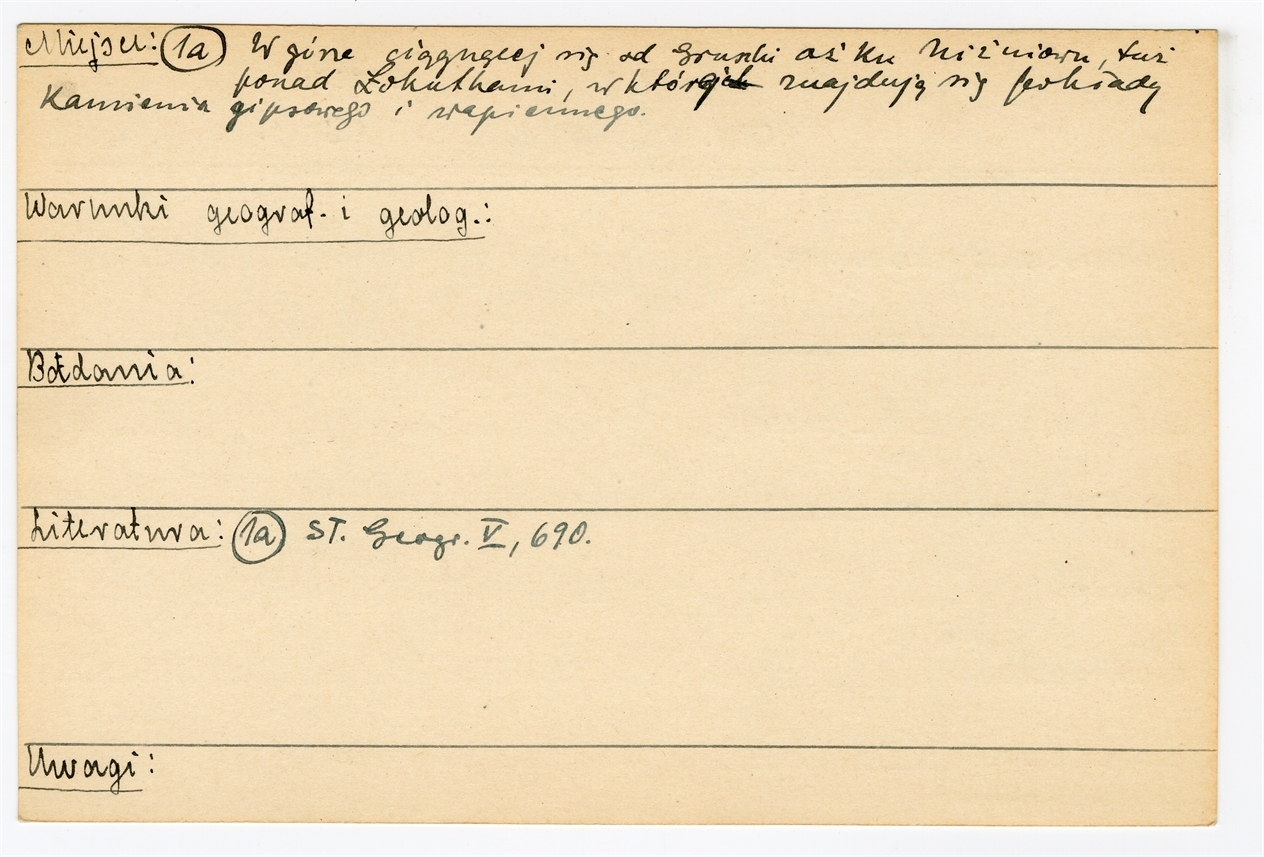 Miejsce: (1a) W górze ciągnącej się od Gruszki aż ku Niżniowu, tuż
ponad Łokutkami, w której znajdują się pokłady
Kamienia gipsowego i wapiennego.
Warunki geograf. i geolog.:
Badania:
Literatura: (1a) Sł. Geogr. V, 690.
Uwagi: